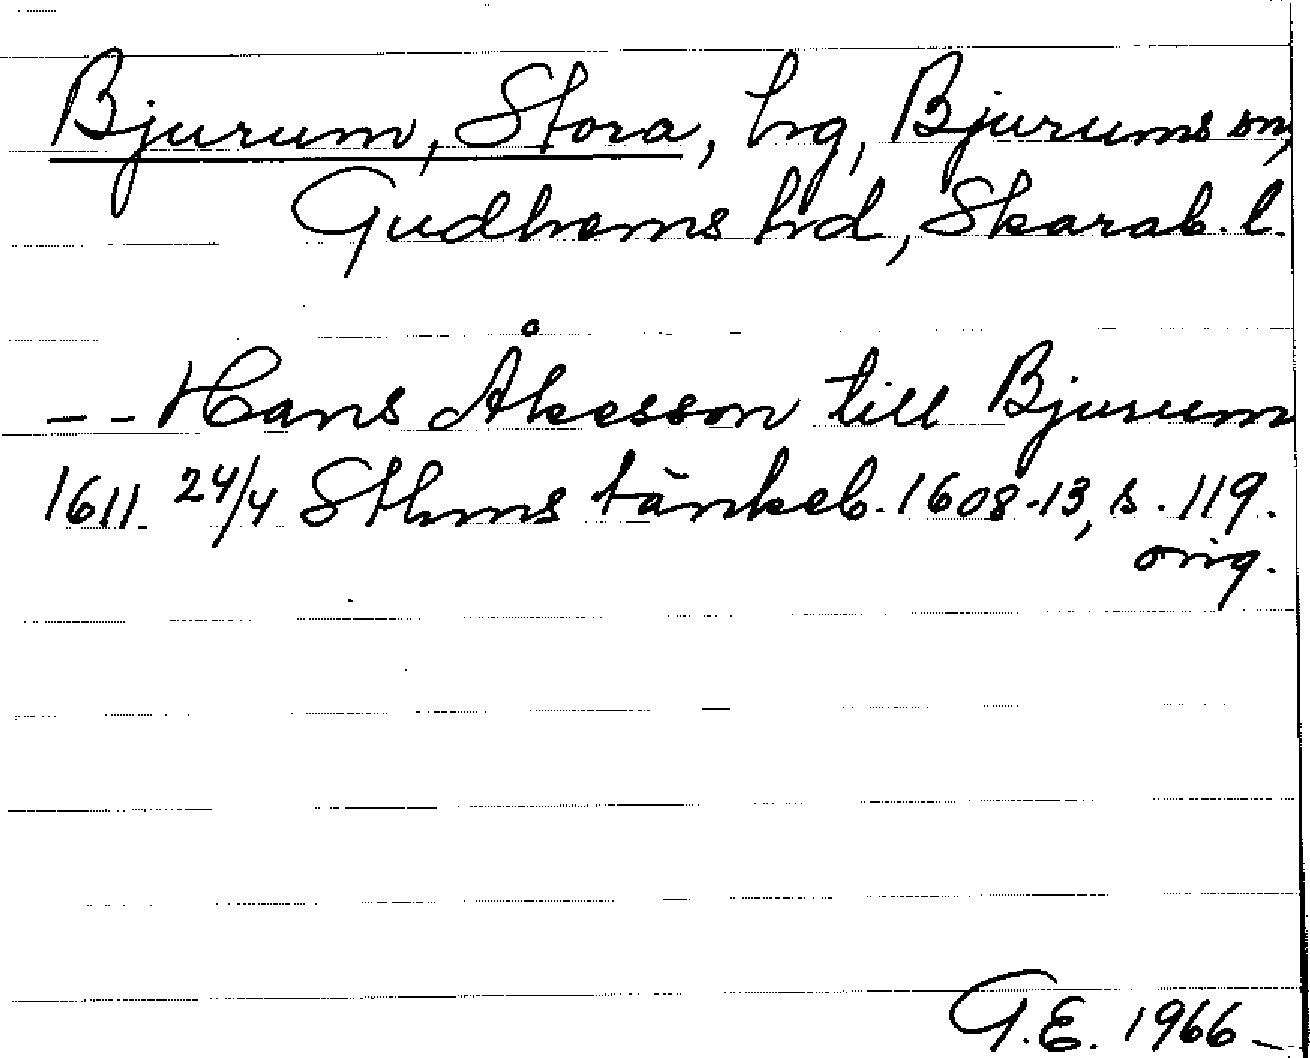 Bjurum, Stora, hg, Bjurums sn,
Gudhems hd, Skarab. l.
-- Hans Åkesson till Bjurum
1611 24/4 Sthms tänkeb. 1608-13, s. 119.
orig.
G.E. 1966